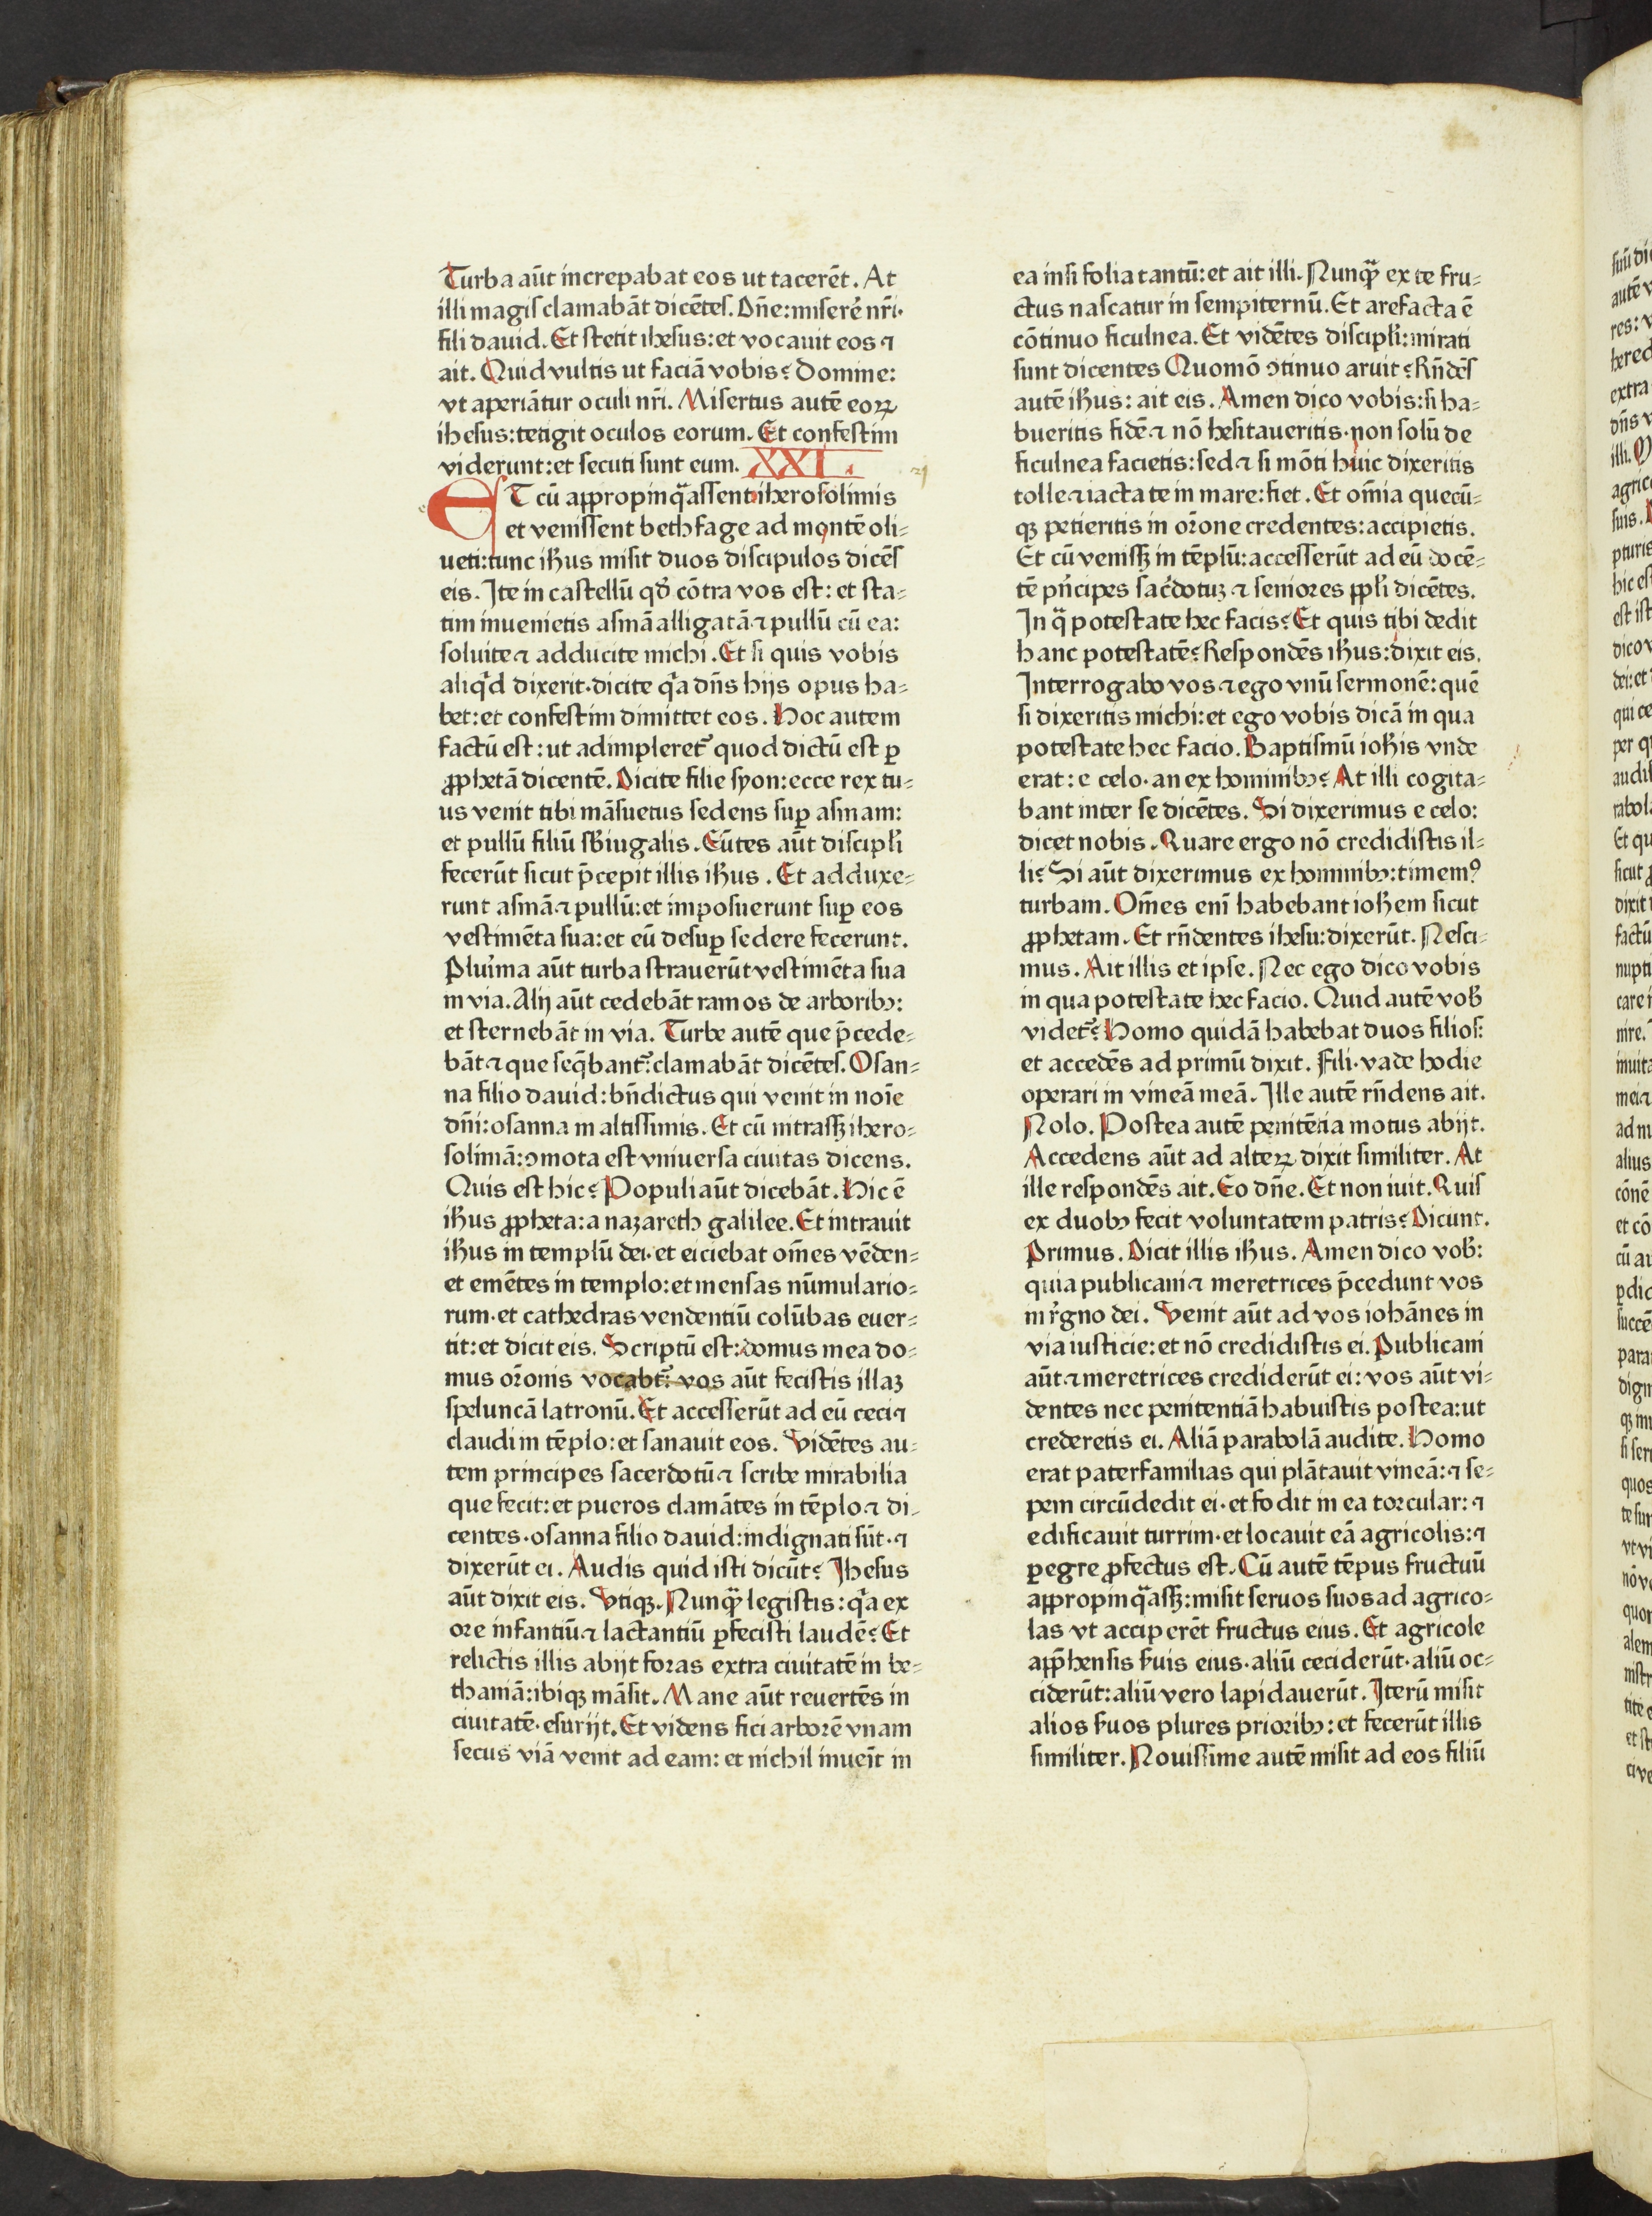 Turba aūt increpabat eos ut tacerēt. At
illi magis clamabāt dicētes. Dn̄e: miserē nr̄i·
fili dauid. Et stetit ihesus: et vocauit eos ⁊
ait. Quid vultis ut faciā vobis? Domine:
vt aperiātur oculi nr̄i. Misertus autē eoꝝ
ihesus: tetigit oculos eorum. Et confestim
viderunt: et secuti sunt eum. XXI.
ET cū appropinq̄assent iherosolimis
et venissent bethfage ad montē oli⸗
ueti: tunc ih̄us misit duos discipulos dicēs
eis. Ite in castellū qđ cōtra vos est: et sta⸗
tim inuenietis asinā alligatā ⁊ pullū cū ea:
soluite ⁊ adducite michi. Et si quis vobis
aliq̄d dixerit· dicite q̄a dn̄s hijs opus ha⸗
bet: et confestim dimittet eos. Hoc autem
factū est: ut adimpleret᷑ quod dictū est ꝑ
ꝓphetā dicentē. Dicite filie syon: ecce rex tu⸗
us venit tibi māsuetus sedens suꝑ asinam:
et pullū filiū sb̄iugalis. Eūtes aūt discipl̄i
fecerūt sicut p̄cepit illis ih̄us. Et adduxe⸗
runt asinā ⁊ pullū: et imposuerunt suꝑ eos
vestimēta sua: et eū desuꝑ sedere fecerunt.
Plur̄ima aūt turba strauerūt vestimēta sua
in via. Alij aūt cedebāt ramos de arboribꝰ:
et sternebāt in via. Turbe autē que p̄cede⸗
bāt ⁊ que seq̄bant᷑: clamabāt dicētes. Osan⸗
na filio dauid: bn̄dictus qui venit in noīe
dn̄i: osanna in altissimis. Et cū intrassꝫ ihero⸗
solimā: ꝯmota est vniuersa ciuitas dicens.
Quis est hic? Populi aūt dicebāt. Hic ē
ih̄us ꝓpheta: a nazareth galilee. Et intrauit
ih̄us in templū dei· et eiciebat om̄es vēden⸗
et emētes in templo: et mensas nūmulario⸗
rum· et cathedras vendentiū colūbas euer⸗
tit: et dicit eis. Scriptū est: domus mea do⸗
mus or̄onis vocabt᷑: vos aūt fecistis illaꝫ
speluncā latronū. Et accesserūt ad eū ceci ⁊
claudi in tēplo: et sanauit eos. Vidētes au⸗
tem principes sacerdotū ⁊ scribe mirabilia
que fecit: et pueros clamātes in tēplo ⁊ di⸗
centes· osanna filio dauid: indignati sūt· ⁊
dixerūt ei. Audis quid isti dicūt? Ihesus
aūt dixit eis. Vtiqꝫ. Nunq̄ꝫ legistis: q̄a ex
ore infantiū ⁊ lactantiū ꝑfecisti laudē? Et
relictis illis abijt foras extra ciuitatē in be⸗
thaniā: ibiqꝫ māsit. Mane aūt reuertēs in
ciuitatē· esurijt. Et videns fici arborē vnam
secus viā venit ad eam: et nichil inueīt in
ea insi folia tantū: et ait illi. Nunq̄ꝫ ex te fru⸗
ctus nascatur in sempiternū. Et arefacta ē
cōtinuo ficulnea. Et vidētes discipl̄i: mirati
sunt dicentes Quomō ꝯtinuo aruit? Rn̄dēs
autē ih̄us: ait eis. Amen dico vobis: si ha⸗
bueritis fidē ⁊ nō hesitaueritis· non solū de
ficulnea facietis: sed ⁊ si mōti huic dixeritis
tolle ⁊ iacta te in mare: fiet. Et om̄ia quecū⸗
qꝫ petieritis in or̄one credentes: accipietis.
Et cū venissꝫ in tēplū: accesserūt ad eū docē⸗
tē pn̄cipes sac̄dotuꝫ ⁊ seniores ppl̄i dicētes.
In q̄ potestate hec facis? Et quis tibi dedit
hanc potestatē? Respondēs ih̄us: dixit eis.
Interrogabo vos ⁊ ego vnū sermonē: quē
si dixeritis michi: et ego vobis dicā in qua
potestate hec facio. Baptismū ioh̄is vnde
erat: e celo· an ex hominibꝰ? At illi cogita⸗
bant inter se dicētes. Si dixerimus e celo:
dicet nobis. Quare ergo nō credidistis il⸗
li? Si aūt dixerimus ex hominibꝰ: timemꝰ
turbam. Om̄es enī habebant ioh̄em sicut
ꝓphetam. Et rn̄dentes ihesu: dixerūt. Nesci⸗
mus. Ait illis et ipse. Nec ego dico vobis
in qua potestate hec facio. Quid autē vob̄
videt᷑? Homo quidā habebat duos filios:
et accedēs ad primū dixit. Fili· vade hodie
operari in vineā meā. Ille autē rn̄dens ait.
Nolo. Postea autē penitētia motus abijt.
Accedens aūt ad alteꝝ dixit similiter. At
ille respondēs ait. Eo dn̄e. Et non iuit. Quis
ex duobꝰ fecit voluntatem patris? Dicunt.
Primus. Dicit illis ih̄us. Amen dico vob̄:
quia publicani ⁊ meretrices p̄cedunt vos
in r̄gno dei. Venit aūt ad vos iohānes in
via iusticie: et nō credidistis ei. Publicani
aūt ⁊ meretrices crediderūt ei: vos aūt vi⸗
dentes nec penitentiā habuistis postea: ut
crederetis ei. Aliā parabolā audite. Homo
erat paterfamilias qui plātauit vineā: ⁊ se⸗
pem circūdedit ei· et fodit in ea torcular: ⁊
edificauit turrim· et locauit eā agricolis: ⁊
ꝑegre ꝓfectus est. Cū autē tēpus fructuū
appropinq̄assꝫ: misit seruos suos ad agrico⸗
las vt acciperēt fructus eius. Et agricole
app̄hensis s̄uis eius· aliū ceciderūt· aliū oc⸗
ciderūt: aliū vero lapidauerūt. Iterū misit
alios s̄uos plures prioribꝰ: et fecerūt illis
similiter. Nouissime autē misit ad eos filiū